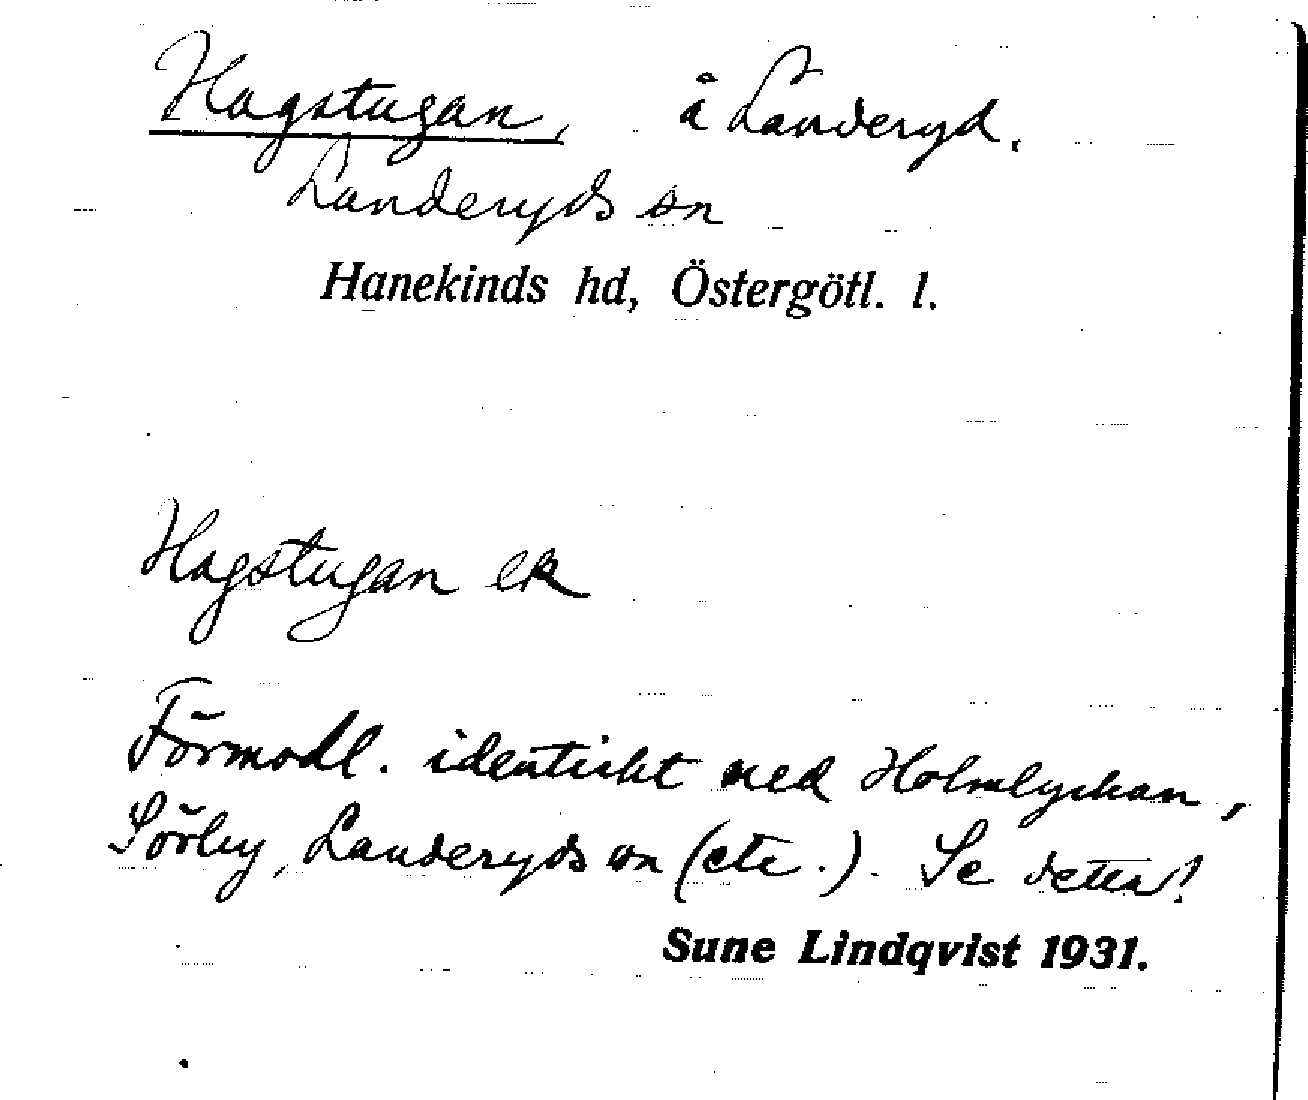 Hagstugan, å Landeryd.
Landeryds sn
Hanekinds hd, Östergötl. l.
Hagstugan ek
Förmodl. identiskt med Holmlyckan,
Sörby, Landeryds sn (etc.). Se detta!
Sune Lindqvist 1931.